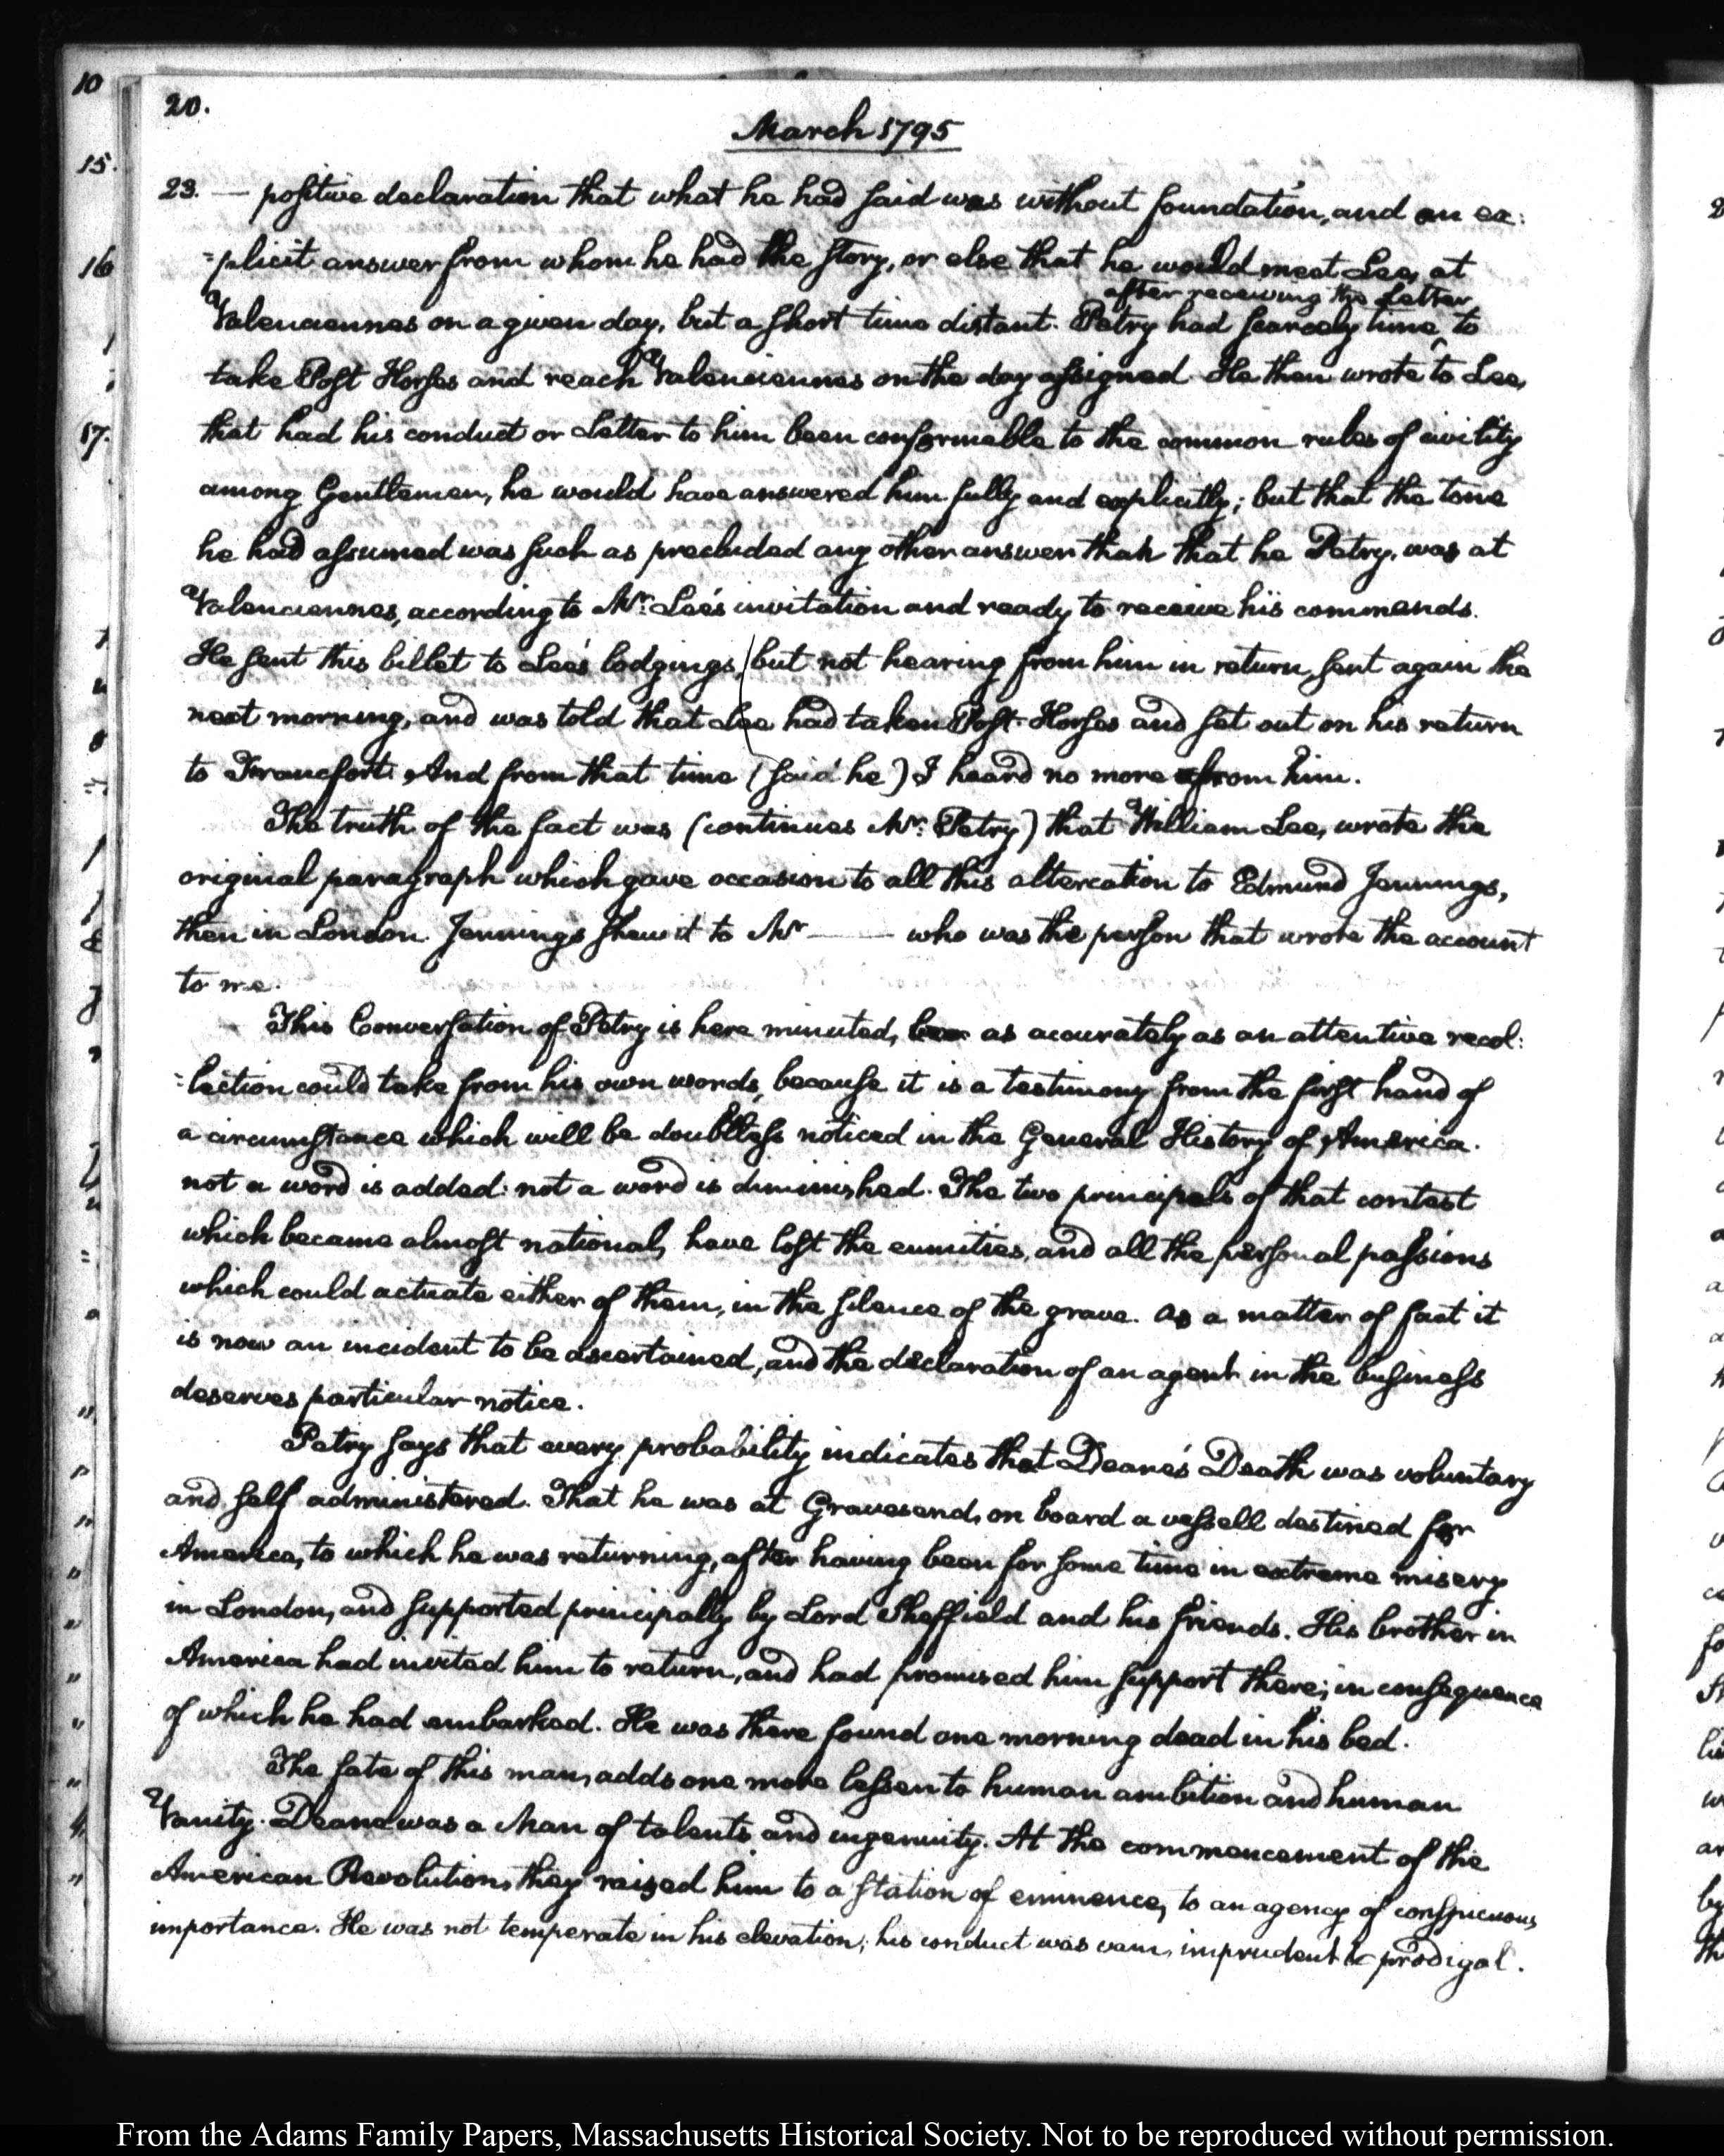 20.
March 1795
23. — positive declaration that what he had said was without foundation, and an ex:
=plicit answer from whom he had the story, or else that he would meet Lee, at
after receiving the Letter
Valenciennes on a given day, but a short time distant. Petry had scarcely time, to
take Post Horses and reach Valenciennes on the day assigned. He then wrote to Lee,
that had his conduct or Letter to him been conformable to the common rules of civility
among Gentlemen, he would have answered him fully and explicitly; but that the tone
he had assumed was such as precluded any other answer than that he Petry, was at
Valenciennes, according to Mr: Lee's invitation and ready to receive his commands.
He sent this billet to Lee's lodgings, but not hearing from him in return, sent again the
next morning, and was told that Lee had taken Post-Horses and set out on his return
to Francfort. And from that time (said he) I heard no more from him.
The truth of the fact was (continues Mr: Petry) that William Lee, wrote the
original paragraph which gave occasion to all this altercation to Edmund Jennings,
then in London. Jennings shew it to Mr —— who was the person that wrote the account
to me.
This Conversation of Petry is here minuted, as accurately as an attentive recol:
=lection could take from his own words, because it is a testimony from the first hand of
a circumstance which will be doubtless noticed in the General History of America.
not a word is added: not a word is diminished. The two principals of that contest
which became almost national, have lost the enmities, and all the personal passions
which could actuate either of them, in the silence of the grave. As a matter of fact it
is now an incident to be ascertained, and the declaration of an agent in the business
deserves particular notice.
Petry says that every probability indicates that Deane's Death was voluntary
and self administered. That he was at Gravesend, on board a vessell destined for
America, to which he was returning, after having been for some time in extreme misery
in London, and supported principally by Lord Sheffield and his friends. His brother in
America had invited him to return, and had promised him support there; in consequence
of which he had embarked. He was there found one morning dead in his bed.
The fate of this man, adds one more lesson to human ambition and human
Vanity. Deane was a Man of talents and ingenuity. At the commencement of the
American Revolution, they raised him to a station of eminence, to an agency of conspicuous
importance. He was not temperate in his elevation; his conduct was vain, imprudent & prodigal.
10
15.
16
17.
From the Adams Family Papers, Massachusetts Historical Society. Not to be reproduced without permission.